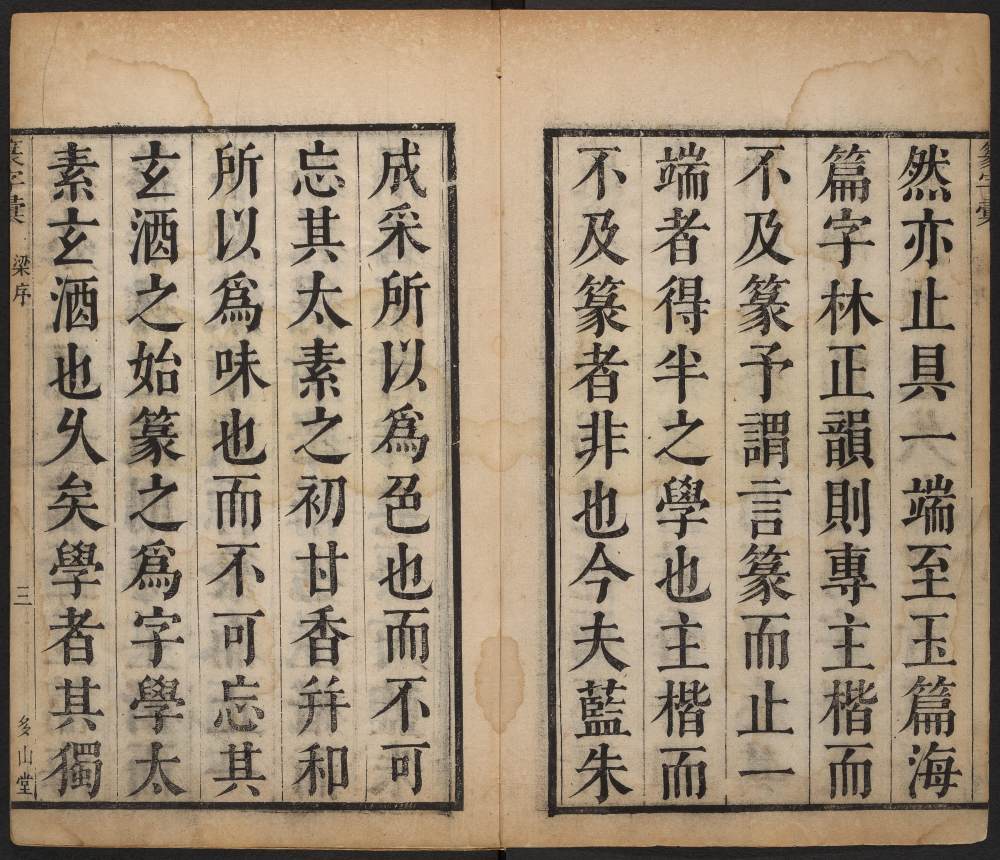 篆字彙
然亦止具一端至玉篇海
篇字林正韻則專主楷而
不及篆予謂言篆而止一
端者得半之學也主楷而
不及篆者非也今夫藍朱
成采所以爲色也而不可
忘其太素之初甘香并和
所以爲味也而不可忘其
玄酒之始篆之爲字學太
素玄酒也久矣學者其獨
篆字彙 梁序 三 多山堂